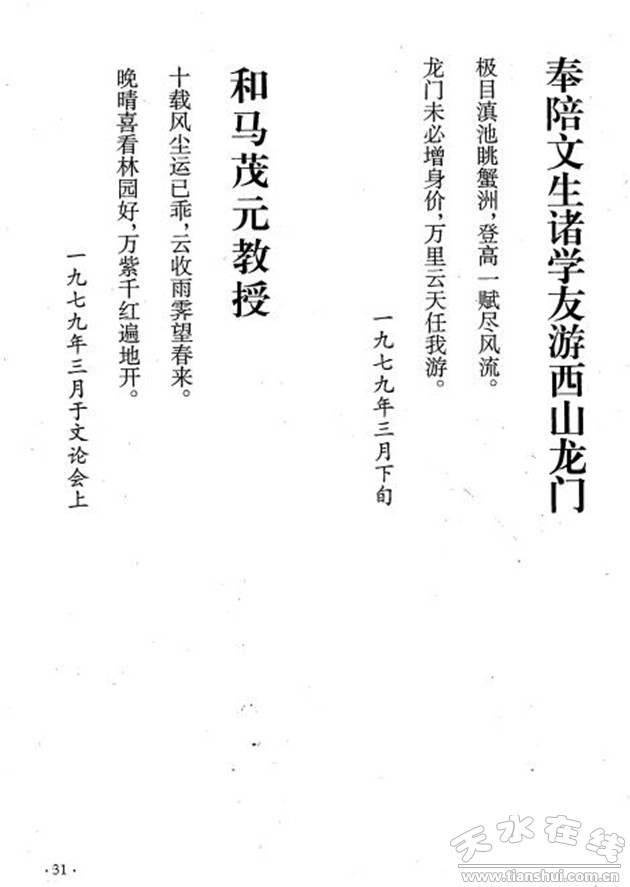 奉陪文生诸学友游西山龙门
极目滇池眺蟹洲，登高一赋尽风流。
龙门未必增身价，万里云天任我游。
一九七九年三月下旬
和马茂元教授
十载风尘运已乖，云收雨霁望春来。
晚晴喜看林园好，万紫千红遍地开。
一九七九年三月于文论会上
·31·
天水在线
www.tianshui.com.cn